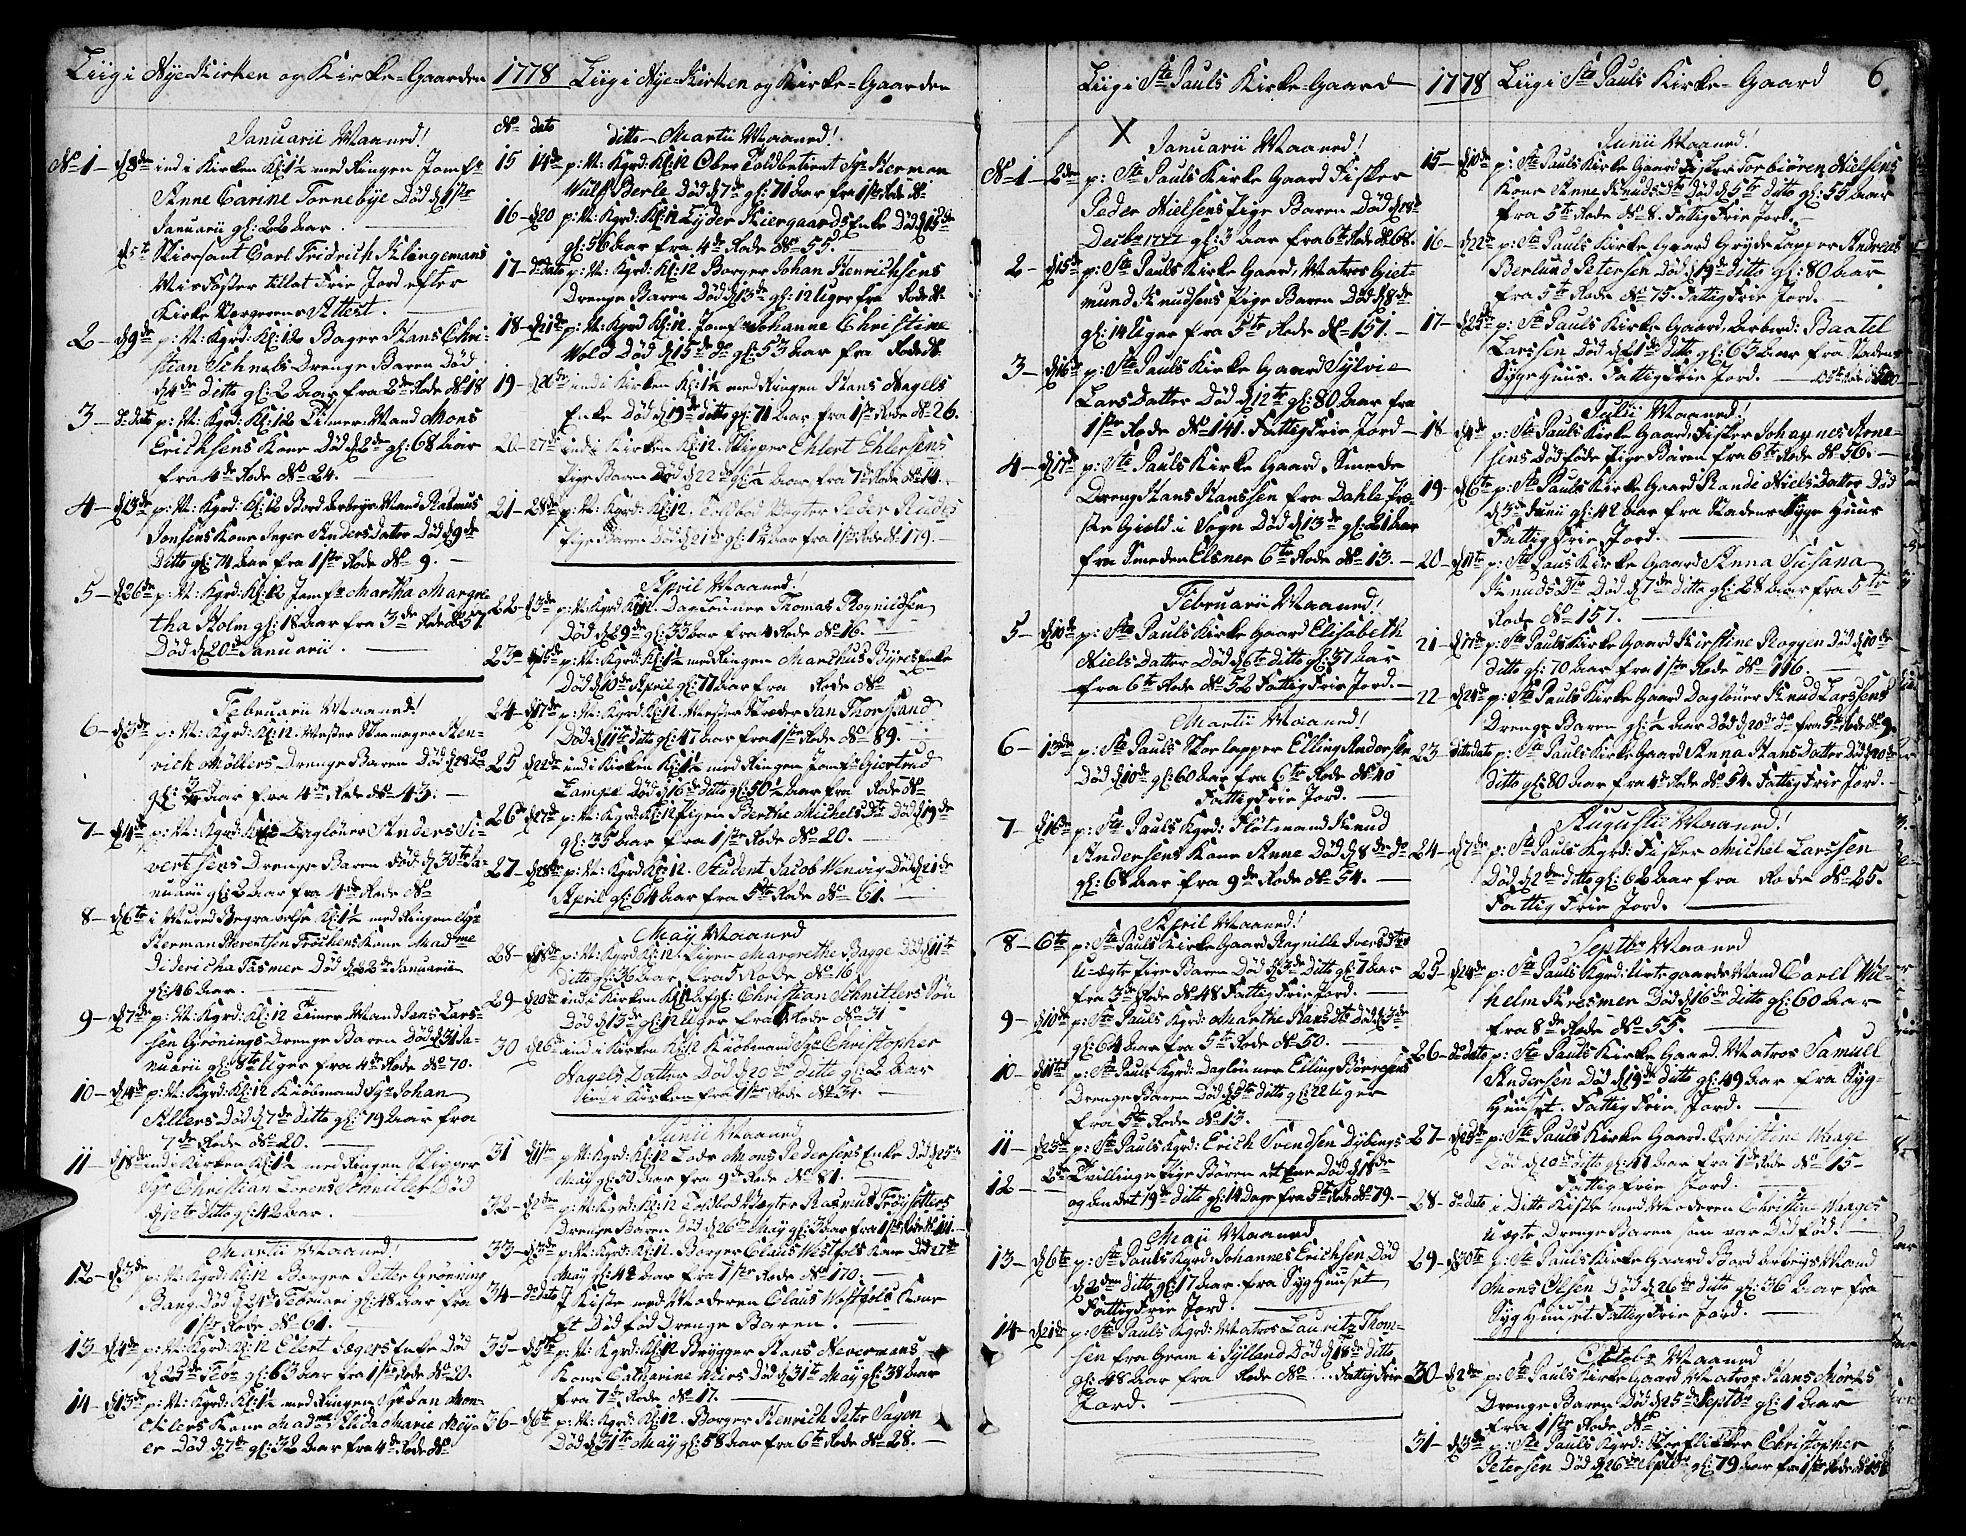 Liig i Nye-Kirken og Kirke-Gaarden
Januarii Maaned!
No 1 - d 3de ind i Kirken Kl: 1½ med Ringen Jomfr
Anne Carine Tornebÿe Død d 1ste
Januarii gl: 22 aar.
d 5t Carl Fridrich Klingemans
tillat Frie Jord efter
Kirke Vergerens Attest.
2 - d 9de p: N: Kgrd: Kl: 12 Bager Hans Chri-
stian Schnels Drenge Baren Død
d 4de ditto gl: 2 aar fra 2de Rode No 18
3 - do dato p: N: Kgrd: Kl: 12 Timer Mand Mons
Erichsens Kone Død d 2de gl: 68 aar
fra 4de Rode No 24.
4 - d 13de p: N: Kgrd: Kl: 12 Bord Arbeÿs Mand Rasmus
Jonsens Kone Inger Anders Datter Død d 9de
Ditto gl: 74 aar fra 1ste Rode No 9.
5 - d 26de p: N: Kgrd: Kl: 12 Jomfr Martha Margre
tha Holm gl: 18 aar fra 3de Rode No 57
Død d 20de Januarii.
Februarii Maaned!
6 - d 3de p: N: Kgrd: Kl: 12. Mester Skomager Hen-
rich Møllers Drenge Baren Død
gl: ¾ aar fra 4de Rode No 43.
7 - d 4de p: N: Kgrd: Kl: 12 Dagløner Anders Si-
vertsens Drenge Baren Død d 30te Ja-
nuarii gl: 2 aar fra 4de Rode No
8 - d 6te i Muured Begravelse Kl: 1½ med Ringen Sgr
Herman Gerentsen Frochens Kone Madme
Didericha Fasmer Død d 22de Januarii
gl: 46 aar.
9 - d 7de p: N: Kgrd: Kl: 12 Timer Mand Jans Lars-
sen Grønings Drenge Baren Død d 31 Ja-
nuarii gl: uger fra 4de Rode No 70.
10 - d 14de p: N: Kgrd: Kl: 12 Kiøbmand Sgr Johan
Allers Død d 7de Ditto gl: 79 aar fra
7de Rode No 20.
11 - d 18de ind i Kirken Kl: 1½ med Ringen Skipper
Sgr Christian Lorens Schnitler Død
d 12te ditto gl: 42 aar.
Martii Maaned!
12 - d 3de p: N: Kgrd: Kl: 12 Borger Petter Grønning
Bang Død d 24de Februari gl: 48 aar fra
1ste Rode No 61.
13 - d 4de p: N: Kgrd: Kl: 12 Elert Segers Enke Død
d 25de Febr gl: 63 aar fra 1ste Rode No 20.
14 - d 13de p: N: Kgrd: Kl: 1½ med Ringen Sgr Jan Mon-
cklers Kone Madme Ilida Marie Meÿ-
er Død d 7de gl: 32 aar fra 4de Rode No
1778 Liig i Nye-Kirken og Kirke-Gaarden
No dato ditto Martii Maaned!
15 14de p: N: Kgrd: Kl: 12 Ober Toldbetient Sgr Herman
Wulf Berle Død d 7de gl: 71 aar fra 1ste Rode No
16 - d 20 p: N: Kgrd: Kl: 12 Lÿder Kiergaards Enke Død d 15de
gl: 56 aar fra 4de Rode No 55.
17 - do dato p: N: Kgrd: Kl: 12 Borger Johan Henrichsens
Drenge Baren Død d 13de gl: 12 uger fra Rode No
18 - d 21de p: N: Kgrd Kl: 12. Jomfr Johanne Christine
Wold Død d 15de do gl: 53 aar fra Rode No
19 - d 26de ind i Kirken Kl: 1½ med Ringen Hans Nagels
Enke Død d 19de ditto gl: 71 aar fra 1ste Rode No 26.
20 - 27de ind i Kirken Kl: 12. Skipper Ehlert Ehlersens
Pige Baren Død d 22de gl: ½ aar fra 7de Rode No 14.
21 - 28de p: N: Kgrd: Kl: 12. Toldbod Vogter Peder Ruus
Pige Baren Død d 21de gl: 1½ aar fra 1ste Rode No 179.
April Maaned!
22 - d 3de p: N: Kgrd: Kl: 12. Dagløner Thomas Rognildsen
Død d 29de gl: 33 aar fra 4 Rode No 16.
23 - d 15de p: N: Kgrd: Kl: 1½ med Ringen Marchus Bÿres Enke
Død d 10de April gl: 77 aar fra Rode No
24 - d 17de p: N: Kgrd: Kl: 12. Mester Jan Thorsland
Død d 11te ditto gl: 47 aar fra 1ste Rode No 89.
25 d 22de ind i Kirken Kl: 1½ med Ringen Jomfr Giertrud
Lampe Død d 16de ditto gl: 50½ aar fra Rode No
26 - d 27de p: N: Kgrd: Kl: 12 Pigen Berthe Michels Dtr Død d 19de
gl: 35 aar fra 1ste Rode No 20.
27 - d 28de p: N: Kgrd: Kl: 12. Student Jacob Wenvig Død d 21de
April gl: 64 aar fra 5te Rode No 61.
Maÿ Maaned
28 - d 18de p: N: Kgrd: Kl: 12. Pigen Margrethe Bagge Død d 11te
ditto gl: 36 aar fra 5 Rode No 16
29 - d 20de ind i Kirken Kl: 12 Christian Schnitlers Søn
Død d 13de gl: 12 uger fra 1 Rode No 31
30 d 26de ind i Kirken Kl: 12 Kiøbmand Sgr Christopher
Nagels Datter Død d 20de ditto gl: 2 aar
ind i Kirken fra 1ste Rode No 34.
Junii Maaned
31 d 1ste p: N: Kgrd: Kl: 12 Lods Mons Pedersens Enke Død d 25de
Maÿ gl: 50 aar fra 9de Rode No 81.
32 - d 2de p: N: Kgrd: Kl: 12 Toldbod Vægter Rasmus Frøÿsetters
Drenge Baren Død d 26te Maÿ gl: 3 aar fra 1ste Rode No 111
33 - d 3de p: N: Kgrd: Kl: 12. Borger Claus Westfols Kone Død 27de
Maÿ gl: 42 aar fra 1ste Rode No 170.
34 - do dato I Kiste med Moderen Claus Wostfols Kone
Et Død fød Drenge Baren.
35 - d 5te p: N: Kgrd: Kl: 12 Brÿgger Hans Nevermans
Kone Catharine Wiers Død d 31te Maÿ gl: 38 aar
fra 7de Rode No 17.
36 - d 6te p: N: Kgrd: Kl: 12. Borger Henrich Peter Sagen
Død d 31te Maÿ gl: 58 aar fra 6te Rode No 28.
Liig i Ste Pauls Kirke-Gaard
X
Januarii Maaned!
No 1 - 2de p: Ste Pauls Kirke Gaard Fisker
Peder Nielsens Pige Baren Død d 28de
Decbr 1777 gl: 3 aar fra 6te Rode No 68.
2 - d 15de p: Ste Pauls Kirke Gaard, Matros Giet-
mund Knudsens Pige Baren Død d 8de
gl: 14 uger fra 5te Rode No 151.
3 - d 16de p: Ste Pauls Kirke Gaard Sylvie
Lars Datter Død d 12te gl: 80 aar fra
1ste Rode No 141. Fattig Frie Jord
4 - d 17de p: Ste Pauls Kirke Gaard Smede
Dreng Hans Hanssen fra Dahle Præ-
ste Gield i Sogn Død d 13de gl: 21 aar
fra Smeden Elsner 6te Rode No 13.
Februarii Maaned!
5 - d 10de p: Ste Pauls Kirke Gaard Elisabeth
Niels Datter Død d 6te ditto gl: 37 aar
fra 6te Rode No 52 Fattig Frie Jord.
Martii Maaned!
6 - 13de p: Ste Pauls Skoelapper Elling Andersen
Død d 10de gl: 60 aar fra 6te Rode No 40
Fattig Frie Jord.
7 - d 16de p: Ste Pauls Kgrd: Fløtmand Knud
Andersens Kone Anne Død d 8de do
gl: 68 aar fra 9de Rode No 54.
April Maaned!
8 - 6te p: Ste Pauls Kirke Gaard Ragnille Ivers Dtrs
U-ægte Pige Baren Død d 3de Ditto gl: 1 aar
fra 3de Rode No 48 Fattig Frie Jord.
9 - d 10de p: Ste Pauls Kgrd: Marthe Hans Dtr Død d 3de
gl: 64 aar fra 5te Rode No 50.
10 - d 11te p: Ste Pauls Kgrd: Dagløner Elling Børresens
Drenge Baren Død d 5te ditto gl: 22 uger
fra 5te Rode No 13.
11 - d 25de p: Ste Pauls Kgrd: Erich Svendsen Dÿbings
12 - 2de Tvillinge Pige Børen et Ene Død d 18de
og andet 19de ditto gl: 14 dage fra 5te Rode No 79.
Maji Maaned
13 - d 6te p: Ste Pauls Kgrd: Johannes Erichsen Død
d 2den ditto gl: 17 aar fra Syghuuset
Fattig Frie Jord.
14 - d 21de p: Ste Pauls Kgrd: Matros Lauritz Thom-
sen fra Gram i Jylland Død d 18de ditto
gl: 48 aar fra Rode No ... Fattig Frie
Jord.
1778 Liig i Ste Pauls Kirke-Gaard 6.
Junii Maaned!
15 - d 10de p: Ste Pauls Kirke Gaard Fisker Torbiøren Nielsens
Kone Anne Knuds Dtr Død d 5te ditto gl: 55 aar
fra 5te Rode No 8. Fattig Frie Jord.
16 - d 22de p: Ste Pauls Kirke Gaard Grÿdelapper Andreas
Berlund Petersen Død d 19de ditto gl: 80 aar
fra 5te Rode No 75. Fattig Frie Jord.
17 - d 25de p: Ste Pauls Kirke Gaard, Arberd: Baatel
Larssen Død d 21de ditto gl: 63 aar fra Stadens
Sÿge Huus. Fattig Frie Jord.
Julii Maaned!
18 - d 4de p: Ste Pauls Kirke Gaard, Fisker Johannes Arne-
sens Dødføde Pige Baren fra 6te Rode No 56.
19 - d 6te p: Ste Pauls Kirke Gaard Rande Niels Datter Død
d 3de Junii gl: 42 aar fra Stadens Sÿge Huus
Fattig Frie Jord.
20 - d 11te p: Ste Pauls Kirke Gaard Anna Susana
Knuds Dtr Død d 7de ditto gl: 28 aar fra 5te
Rode No 157.
21 - d 17de p: Ste Pauls Kirke Gaard Kirstine Roggen Død d 10de
ditto gl: 70 aar fra 1ste Rode No 116.
22 - d 24de p: Ste Pauls Kirke Gaard Dagløner Knud Larssens
Drenge Baren gl: ½ aar Død d 20de do fra 5te Rode No 9.
23 - ditto dato p: Ste Pauls Kirke Gaard Anna Hans Datter Død d 20de
ditto gl: 80 aar fra 4de Rode No 54. Fattig Frie Jord.
Augustii Maaned!
24 - d 7de p: Ste Pauls Kgrd: Fisker Michel Larssen
Død d 2den ditto gl: 62 aar fra Rode No 25.
Fattig Frie Jord.
Septbr Maaned
25 - d 24de p: Ste Pauls Kgrd: Urtegaards Mand Carel Wil-
helm Kresmer Død d 16de ditto gl: 60 aar
fra 8de Rode No 55.
26 - do dato p: Ste Pauls Kirke Gaard. Matros Samuel
Andersen Død d 19de ditto gl: 49 aar fra Syg-
Huuset. Fattig Frie Jord.
27 - d 23de p: Ste Pauls Kirke Gaard. Christine Waage
Død d 20de ditto gl: 47 aar fra 1de Rode No 15
Fattig Frie Jord.
28 - do dato i Ditto Kiste med Moderen Christine Waages
uægte Drenge Baren som var Død fød.
29 - d 30te p: Ste Pauls Kirke Gaard Bord Arbeÿs Mand
Mons Olsen Død d 26de ditto gl: 36 aar fra
Syg Huuset Fattig Frie Jord.
Octobr Maaned
30 - d 2de p: Ste Pauls Kirke Gaard Matros Hans Mørks
Drenge Baren Død d 25de Septbr gl: 1 aar
fra 1ste Rode No
31 - d 3de p: Ste Pauls Kgrd: Skoeflikker Christopher
Petersen Død d 26de Septbr gl: 79 aar fra 1ste Rode No 158